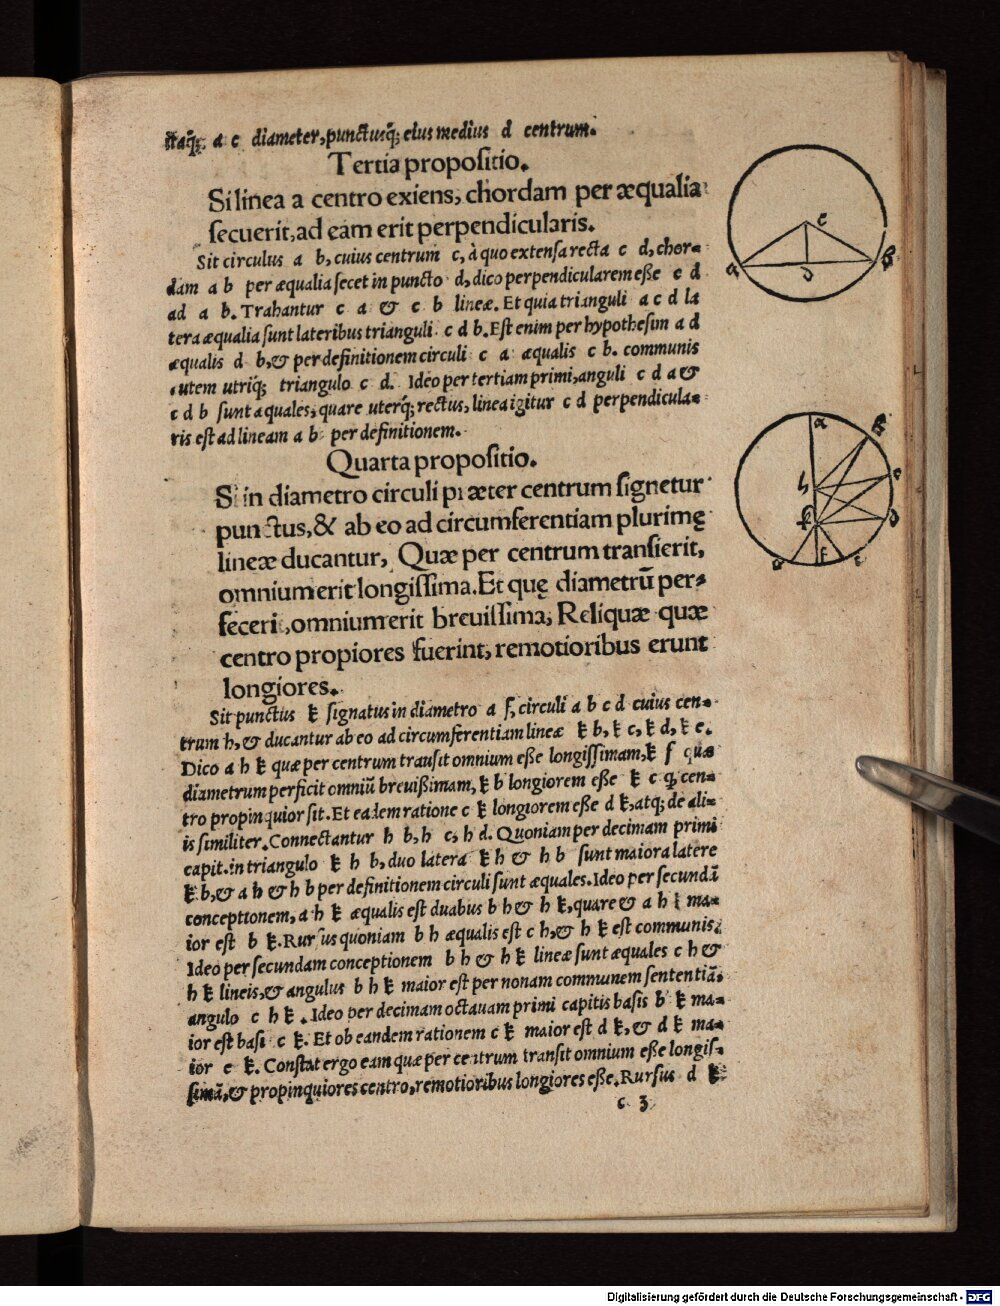 itaq; a c diameter, punctusq; eius medius d centrum.
Tertia propositio.
Si linea a centro exiens, chordam per æqualia
secuerit, ad eam erit perpendicularis.
Sit circulus a b, cuius centrum c, à quo extensa recta c d, chor=
dam a b per æqualia secet in puncto d, dico perpendicularem eße c d
ad a b. Trahantur c a & c b lineæ. Et quia trianguli a c d la
tera æqualia sunt lateribus trianguli c d b. Est enim per hypothesim a d
æqualis d b, & per definitionem circuli c a æqualis c b. communis
autem utriq; triangulo c d. Ideo per tertiam primi, anguli c d a &
c d b sunt æquales, quare uterq; rectus, linea igitur c d perpendicula=
ris est ad lineam a b per definitionem.
Quarta propositio.
Si in diametro circuli præter centrum signetur
punctus, & ab eo ad circumferentiam plurimę
lineæ ducantur, Quæ per centrum transierit,
omnium erit longissima. Et quę diametrū per=
feceri, omnium erit breuissima, Reliquæ quæ
centro propiores fuerint, remotioribus erunt
longiores.
Sit punctus k signatus in diametro a f, circuli a b c d cuius cen=
trum h, & ducantur ab eo ad circumferentiam lineæ k b, k c, k d, k e.
Dico a h k quæ per centrum transit omnium eße longissimam, k f quæ
diametrum perficit omniū breuißimam, k b longiorem eße k c q, cen=
tro propinquior sit. Et eadem ratione c k longiorem eße d k, atq; de ali=
is similiter. Connectantur h b, h c, h d. Quoniam per decimam primi
capit. in triangulo k h b, duo latera k h & h b sunt maiora latere
k b, & a h & h b per definitionem circuli sunt æquales. Ideo per secundā
conceptionem, a h k æqualis est duabus b h & h k, quare & a h k ma=
ior est b k. Rursus quoniam b h æqualis est c h, & h k est communis.
Ideo per secundam conceptionem b h & h k lineæ sunt æquales c h &
h k lineis, & angulus b h k maior est per nonam communem sententiā,
angulo c h k. Ideo per decimam octauam primi capitis basis b k ma=
ior est basi c k. Et ob eandem rationem c k maior est d k, & d k ma=
ior e k. Constat ergo eam quæ per centrum transit omnium eße longis=
simā, & propinquiores centro, remotioribus longiores eße. Rursus d k
c 3
c
a
D
B
a
B
c
h
D
k
G
f
e
Digitalisierung gefördert durch die Deutsche Forschungsgemeinschaft - DFG